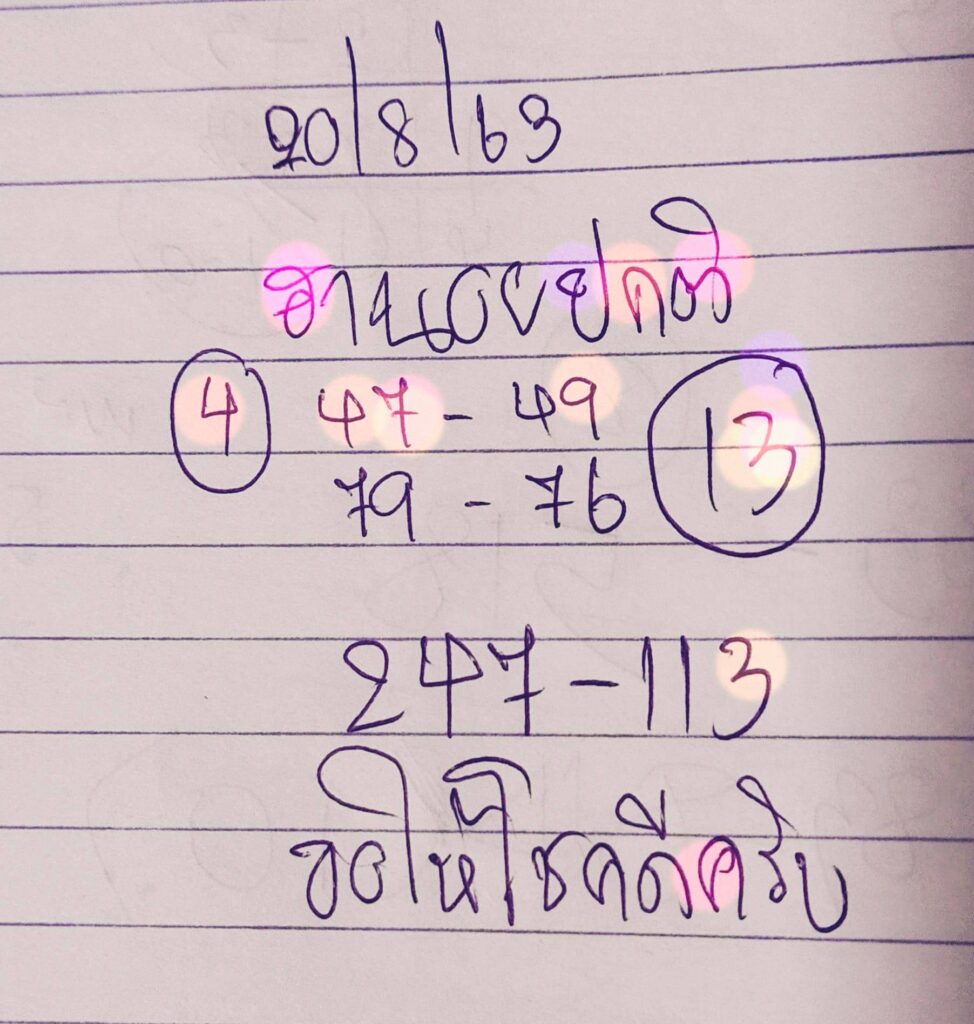 20/8/63
ฮานอยปกติ
4 47 - 49 13
79 - 76
247 - 113
ขอให้โชคดีครับ